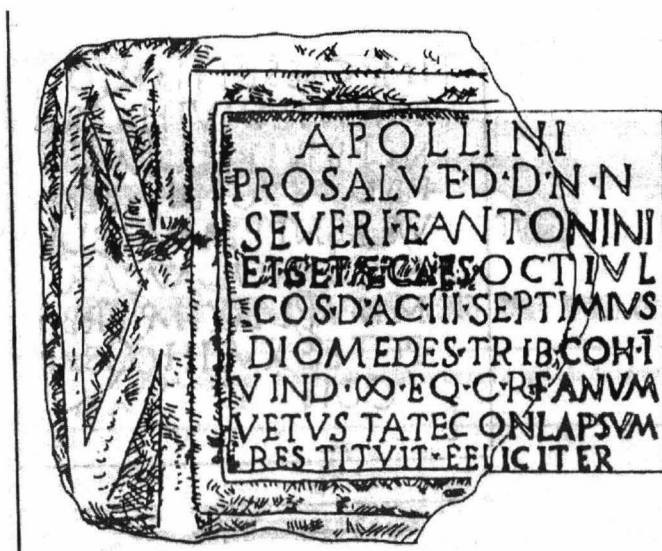 APOLLINI
PRO SALVTE·D·D·N·N
SEVERI·E·ANTONINI
ET GETAE CAES·OCT IVL
COS·D·AC·III·SEPTIMIVS
DIOMEDES·TRIB·COH·Ī
VIND·∞·EQ·C·R·FANVM
VETVSTATE CONLAPSVM
RESTITVIT·FELICITER